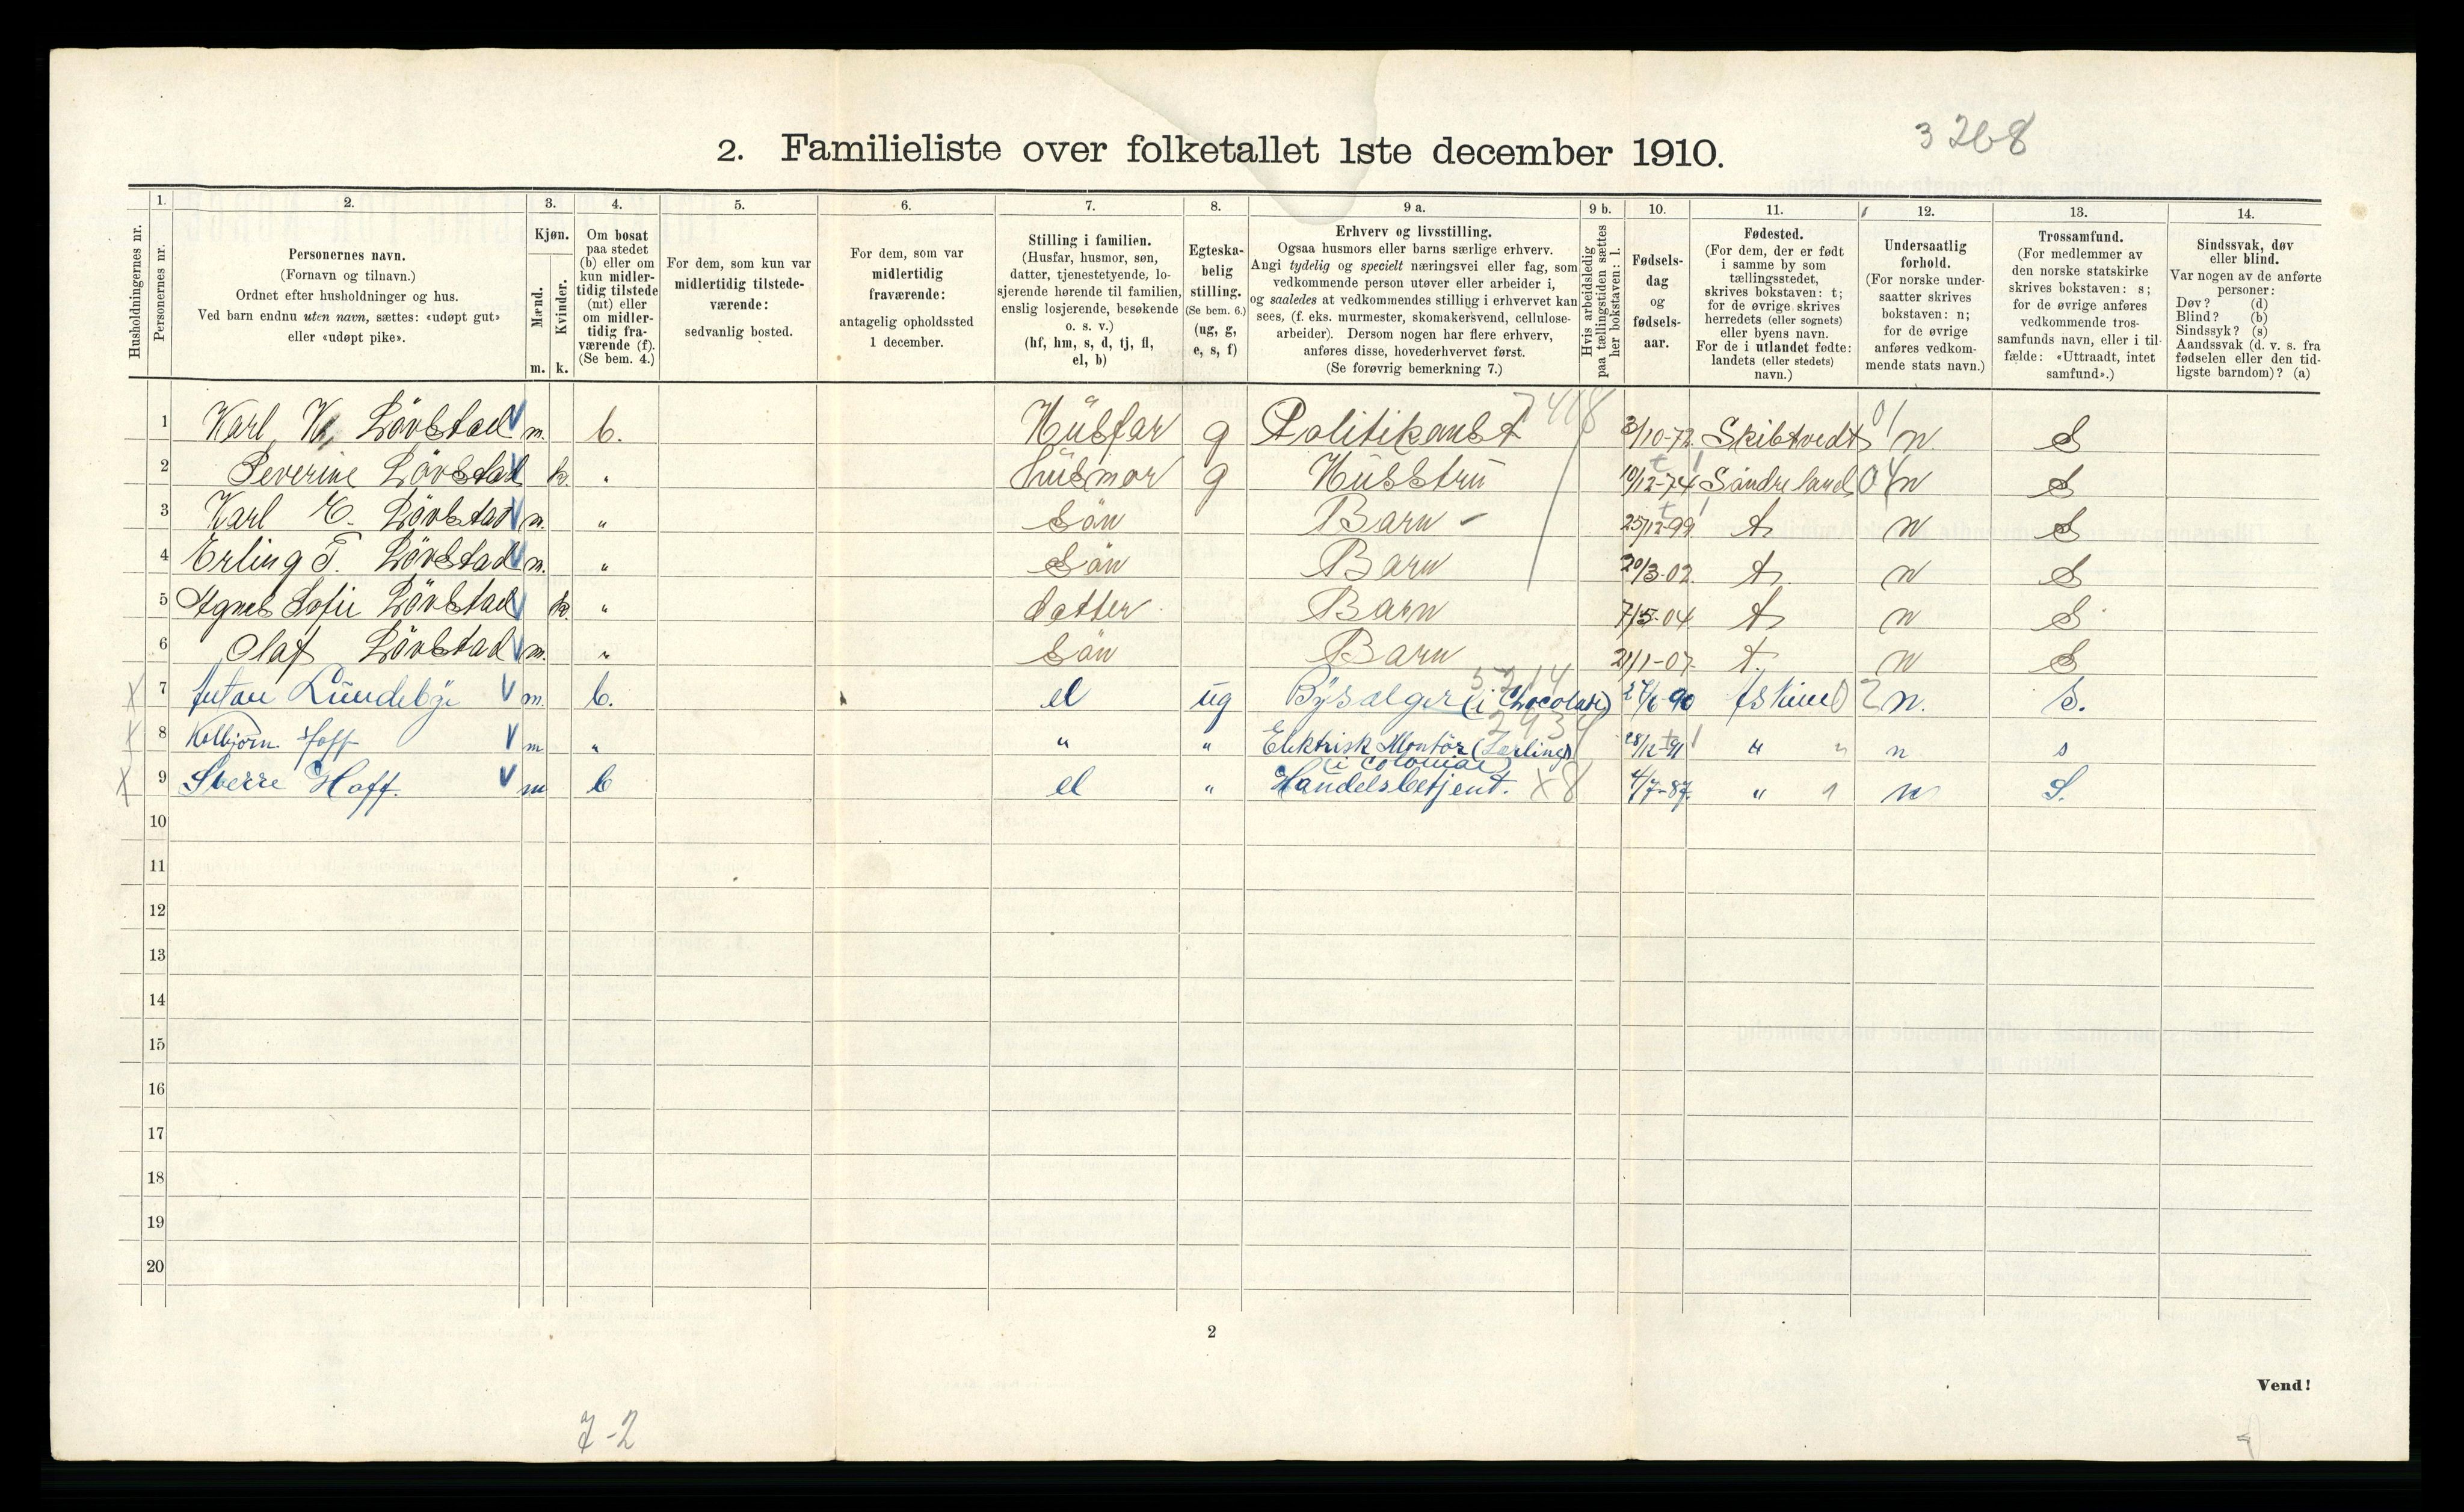 3 268
2. Familieliste over folketallet 1ste december 1910.
Husholdningernes nr.
1. Personernes nr.
2. Personernes navn. (Fornavn og tilnavn.) Ordnet efter husholdninger og hus. Ved barn endnu uten navn, sættes: «udøpt gut» eller «udøpt pike».
3. Kjøn. Mænd. m. Kvinder. k.
4. Om bosat paa stedet (b) eller om kun midlertidig tilstede (mt) eller om midlertidig fraværende (f). (Se bem. 4.)
5. For dem, som kun var midlertidig tilstedeværende: sedvanlig bosted.
6. For dem, som var midlertidig fraværende: antagelig opholdssted 1 december.
7. Stilling i familien. (Husfar, husmor, søn, datter, tjenestetyende, losjerende hørende til familien, enslig losjerende, besøkende o. s. v.) (hf, hm, s, d, tj, fl, el, b)
8. Egteskabelig stilling. (Se bem. 6.) (ug, g, e, s, f)
9 a. Erhverv og livsstilling. Ogsaa husmors eller barns særlige erhverv. Angi tydelig og specielt næringsvei eller fag, som vedkommende person utøver eller arbeider i, og saaledes at vedkommendes stilling i erhvervet kan sees, (f. eks. murmester, skomakersvend, cellulosearbeider). Dersom nogen har flere erhverv, anføres disse, hovederhvervet først. (Se forøvrig bemerkning 7.)
9 b. Hvis arbeidsledig paa tællingstiden sættes her bokstaven: l.
10. Fødselsdag og fødselsaar.
11. Fødested. (For dem, der er født i samme by som tællingsstedet, skrives bokstaven: t; for de øvrige skrives herredets (eller sognets) eller byens navn. For de i utlandet fødte: landets (eller stedets) navn.)
12. Undersaatlig forhold. (For norske undersaatter skrives bokstaven: n; for de øvrige anføres vedkommende stats navn.)
13. Trossamfund. (For medlemmer av den norske statskirke skrives bokstaven: s; for de øvrige anføres vedkommende trossamfunds navn, eller i tilfælde: «Uttraadt, intet samfund».)
14. Sindssvak, døv eller blind. Var nogen av de anførte personer: Døv? (d) Blind? (b) Sindssyk? (s) Aandssvak (d. v. s. fra fødselen eller den tidligste barndom)? (a)
1 Karl K. Lövstad m. b. Hüsfar g Politikonst 3/10-72 Skibtvedt 01 n S
2 Severine Lövstad k. " hüsmor g Hüsstrü 10/12-74 Söndre land 04 n S
3 Karl E. Lövstad m. " Sön Barn 25/12-99 t n S
4 Erling T. Lövstad m. " Sön Barn 20/3-02 t n S
5 Agnes Sofie Lövstad k. " datter Barn 7/5-04 t n S
6 Olaf Lövstad m. " Sön Barn 21/1-07 t. n S
5214
7 Lündeby m. b. el üg Bysælger (i Chocolade) 27/6-90 Askim 02 n. S.
8 Kolbjörn Hoff m " " " Elektrisk Montör (Lærling) 28/12-91 " " n s
(i Colonial)
9 Sverre Hoff. m b el " Handelsbetjent. X8 4/7-87 " 1 n S.
10
11
12
13
14
15
16
17
18
19
20
2
Vend!
7-2